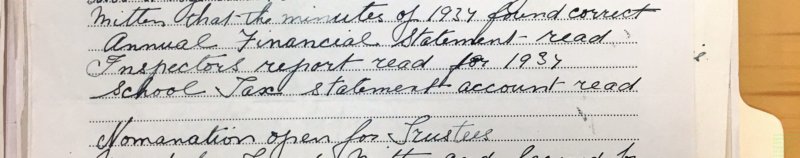 Mitten that the minutes of 1934 found correct
Annual Financial Statement read
Inspectors report read for 1934
School Tax Statement account read
Nomanation open for Trustees